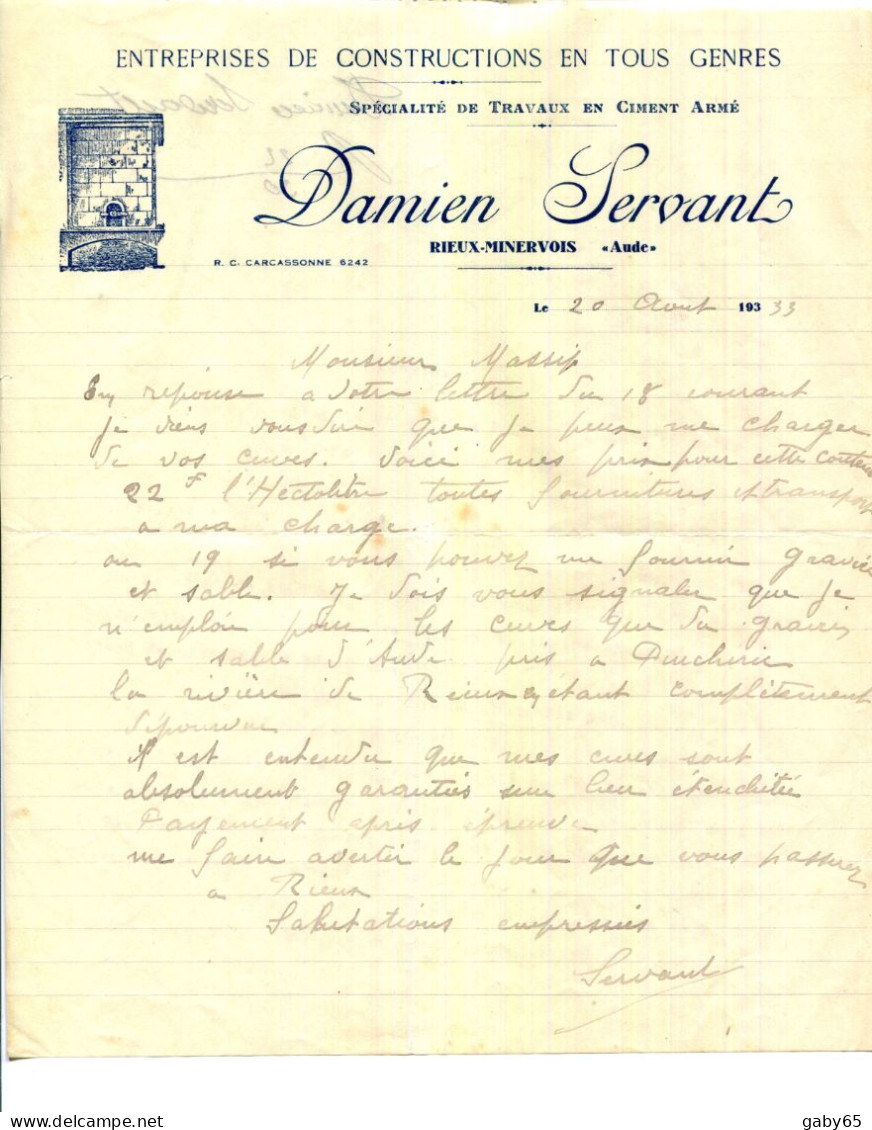 ENTREPRISES DE CONSTRUCTIONS EN TOUS GENRES
SPÉCIALITÉ DE TRAVAUX EN CIMENT ARMÉ
Damien Servant
RIEUX-MINERVOIS «Aude»
R. C. CARCASSONNE 6242
Le 20 Aout 193 33
Monsieur Massip
En reponse a votre lettre du 18 courant
je viens vous dire que je peux me charger
de vos cuves. Voici mes prix pour cette
22 f l'Hectolitre toutes fournitures et transport
a ma charge.
ou 19 si vous pouvez me fournir gravier
et sable. Je dois vous signaler que je
n'emploie pour les cuves que du gravier
et sable d'Aude pris a Puicheric
la rivière de Rieux étant complètement
dépourvue
Il est entendu que mes cuves sont
absolument garanties sur leur étenchéité
Payement après épreuve
me faire avertir le jour que vous passerez
a Rieux
Salutations empressées
Servant
gaby65